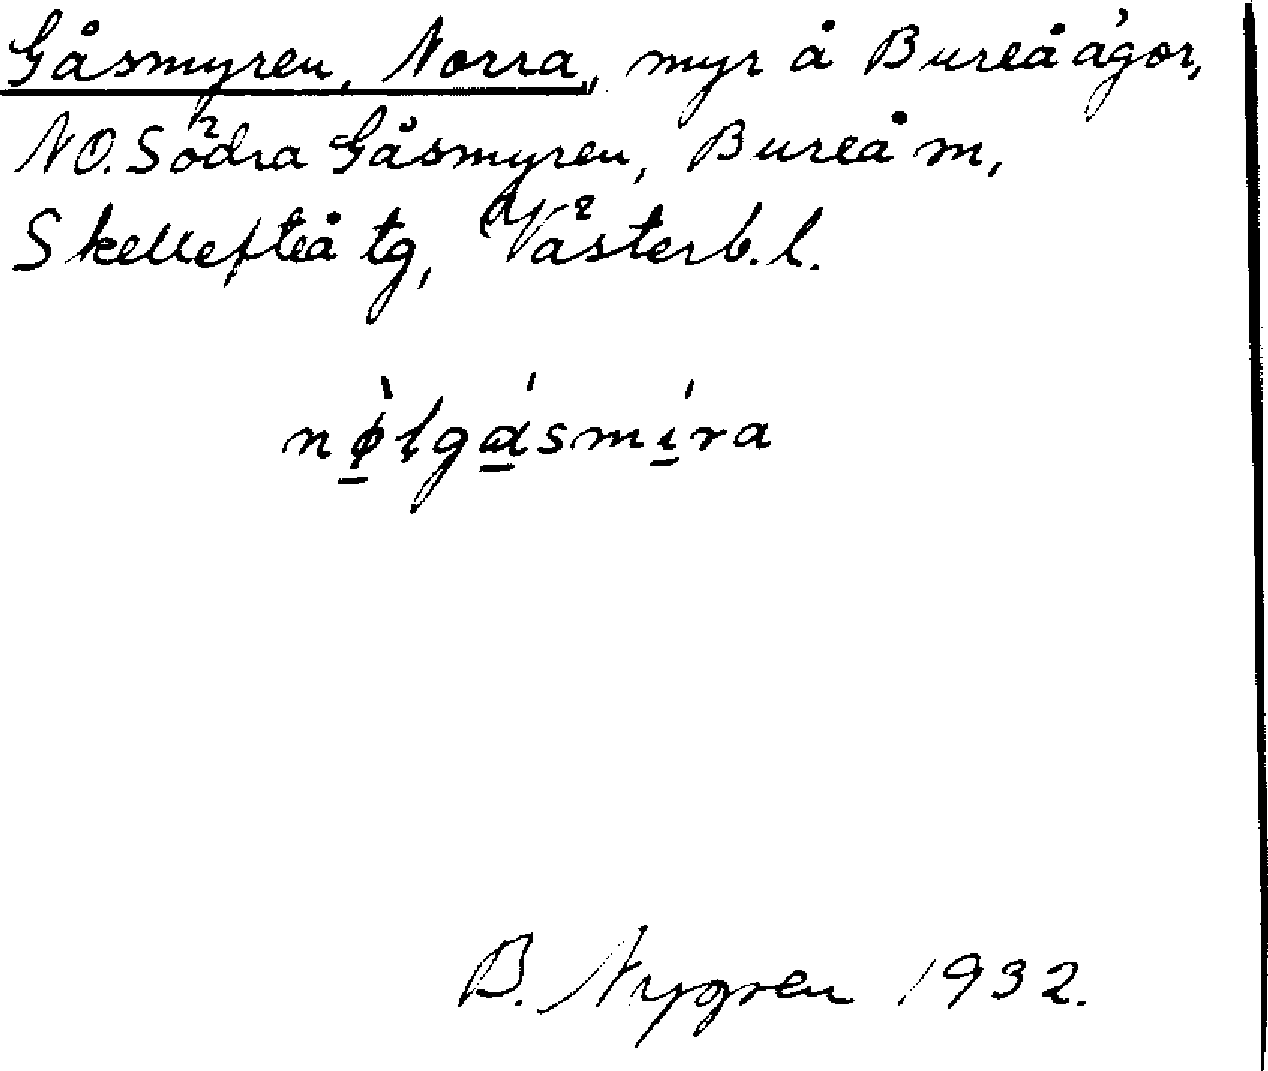 Gåsmyren, Norra, myr å Bureå ägor,
NO. Södra Gåsmyren, Bureå m,
Skellefteå tg, Västerb. l.
nø̲̀lgά̲smí̲ra
B. Nygren 1932.